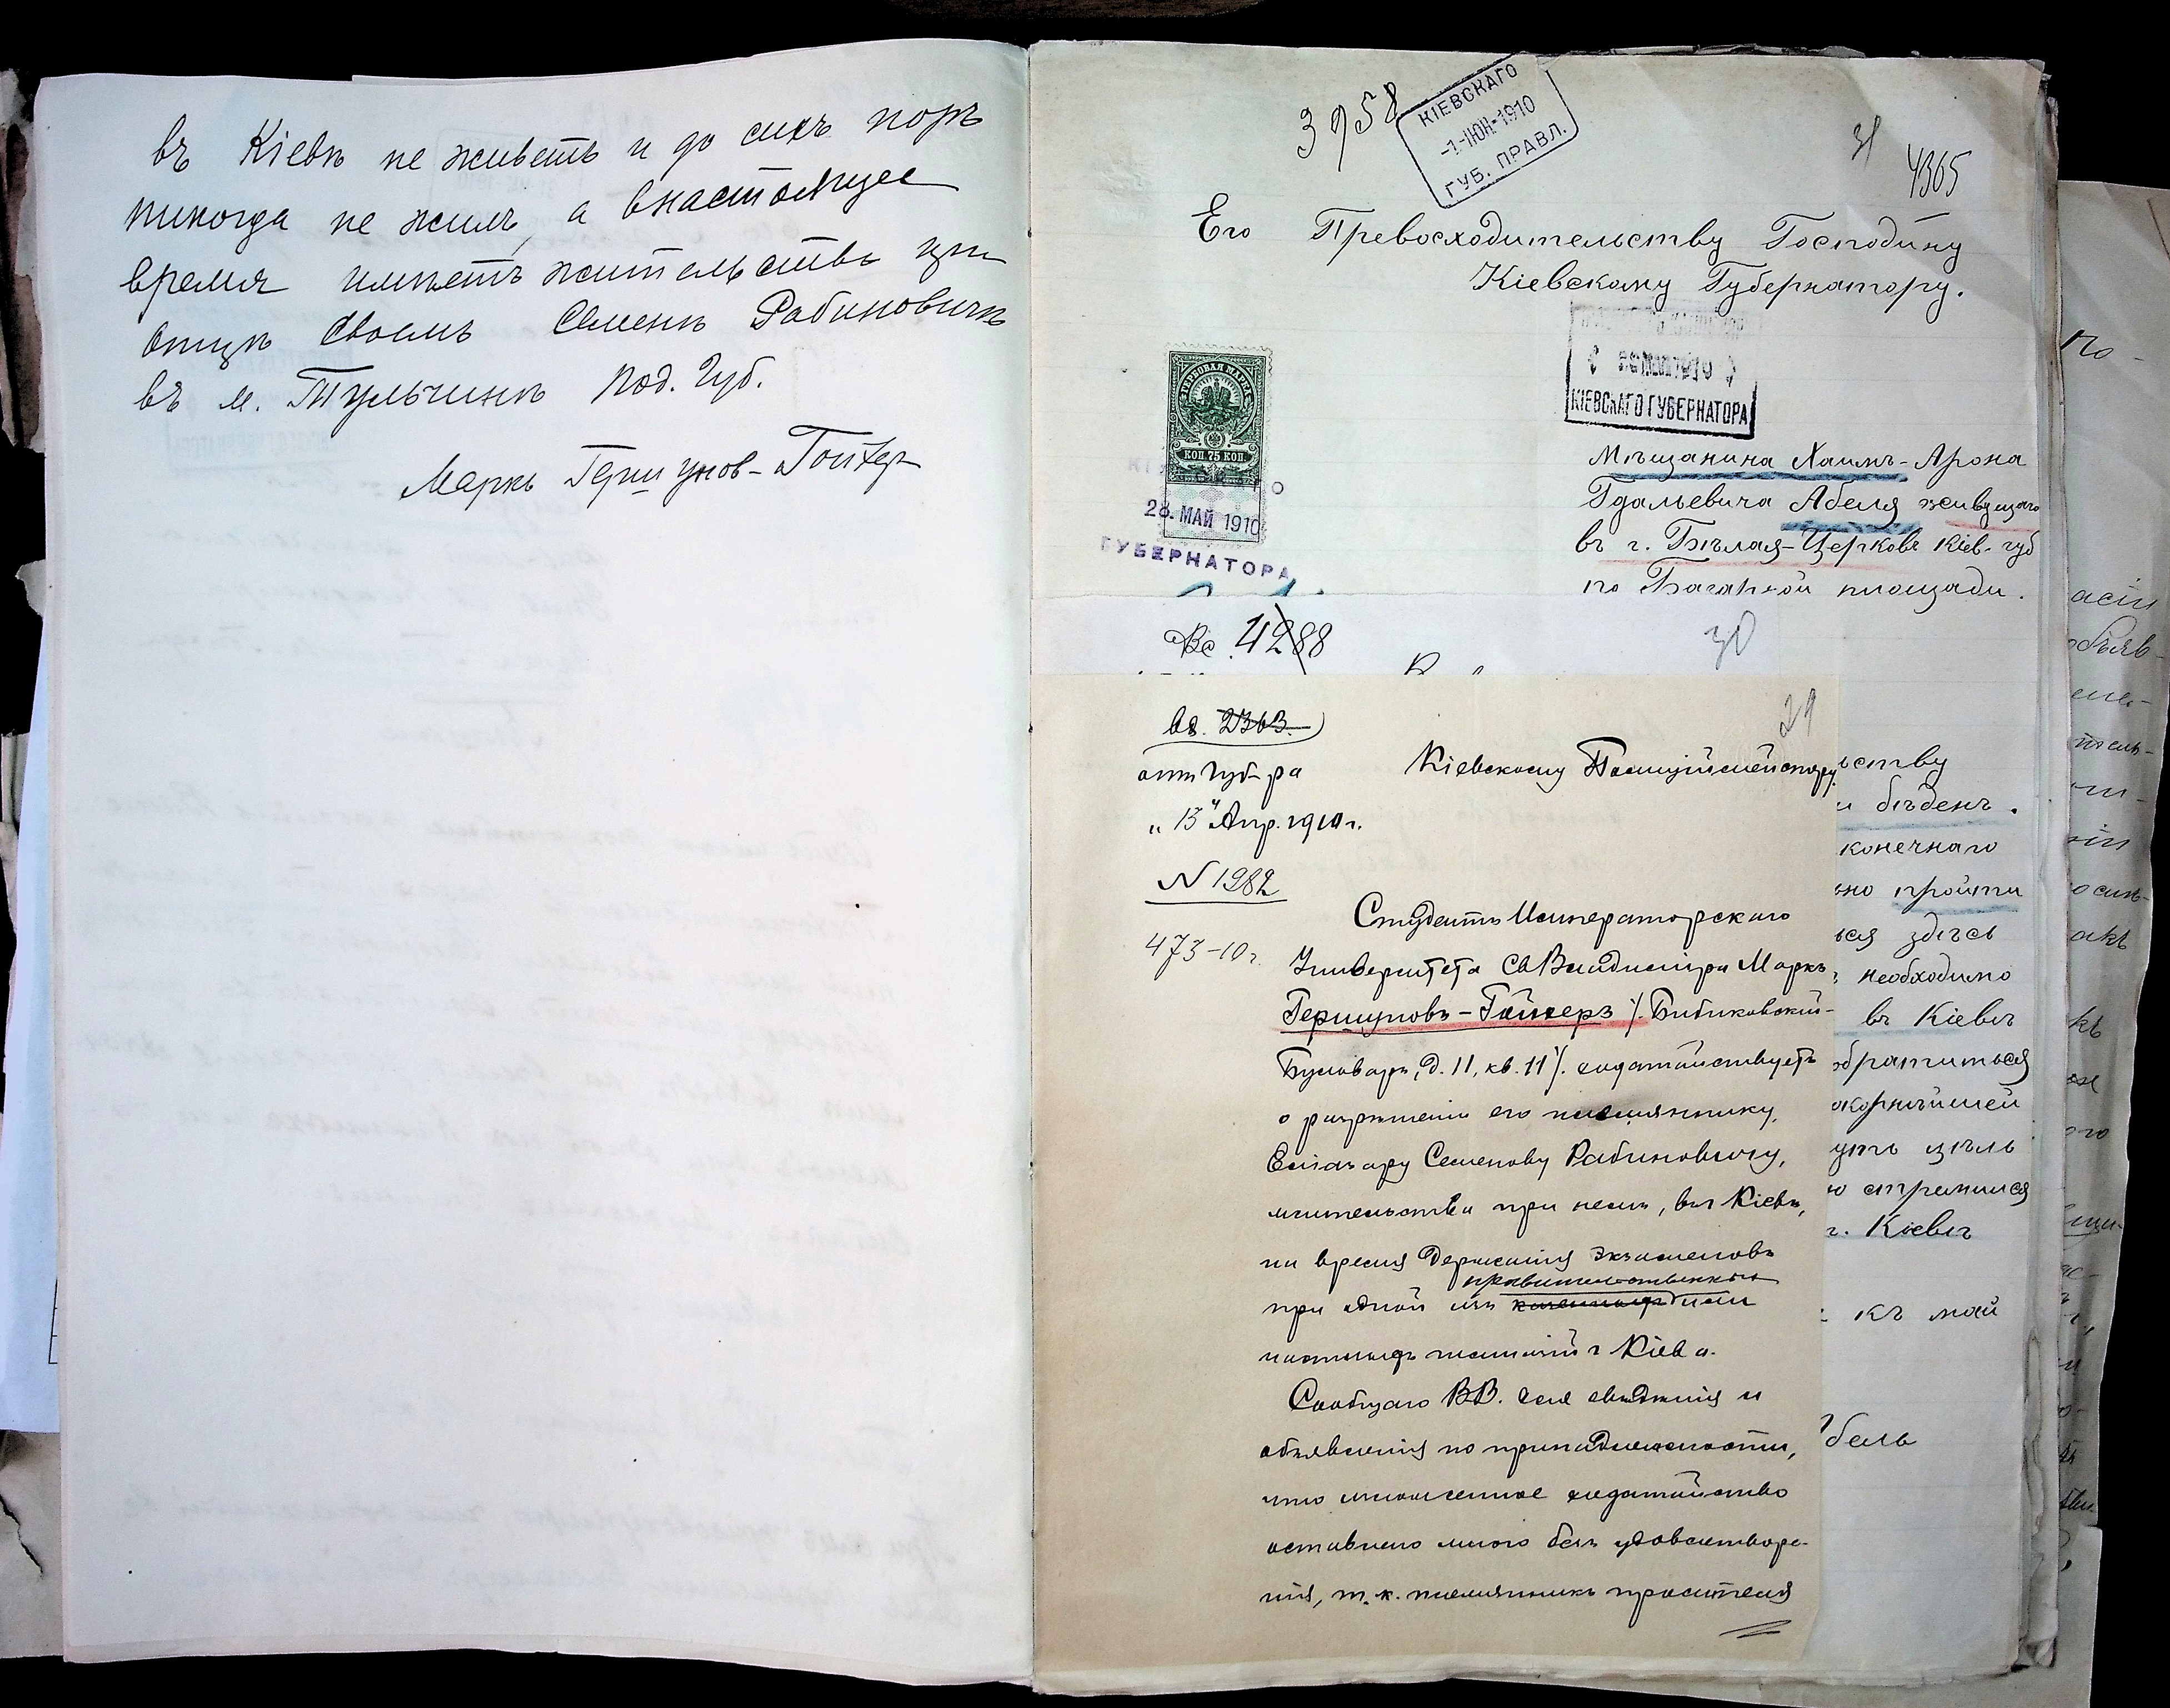 въ Кіевѣ не живетъ и до сихъ поръ
никогда не жилъ, а внастоящее
время имѣетъ жительство при
отцѣ своемъ Семенѣ Рабиновичѣ
въ м. Тульчинѣ Под. Губ.
Маркъ Гершунов-Гойхер
3958
КІЕВСКАГО
-1-ІЮН-1910
ГУБ. ПРАВЛ.
31
4365
Его Превосходительству Господину
Кіевскому Губернатору.
КІЕВСКАГО ГУБЕРНАТОРА
ГЕРБОВАЯ МАРКА
КОП. 75 КОП.
28. МАЙ 1910
ГУБЕРНАТОРА
Мѣщанина Хаимъ-Арона
Гдальевича Абеля живущаго
въ г. Бѣлая-Церковь Кіев. губ
по Базарной площади.
Вс. 4288
30
вх. 2363
29
отъ Губ-ра
Кіевскому Полиціймейстеру
"13" Апр. 1910 г.
N 1982
473-10 г.
Студентъ Императорскаго
Университета Св Владиміра Маркъ
Гершуновъ-Гойхеръ /. Бибиковскій-
Бульваръ, д. 11, кв. 11 /. ходатайствуетъ
о разрѣшеніи его племяннику,
Еліазару Семенову Рабиновичу,
жительства при немъ, въ Кіевѣ,
на время держанія экзаменовъ
правительственныхъ
при одной изъ гимназій г Кіева.
Сообщаю ВВ. для свѣдѣнія и
объявленія по принадлежности,
что изложенное ходатайство
оставлено мною безъ удовлетворе-
нія, т. к. племянникъ просителя
ьству
и бѣденъ.
конечнаго
но пройти
ься здѣсь
необходимо
въ Кіевѣ
обратиться
окорнѣйшей
цѣль
стремился
г. Кіевѣ
къ май
Абель